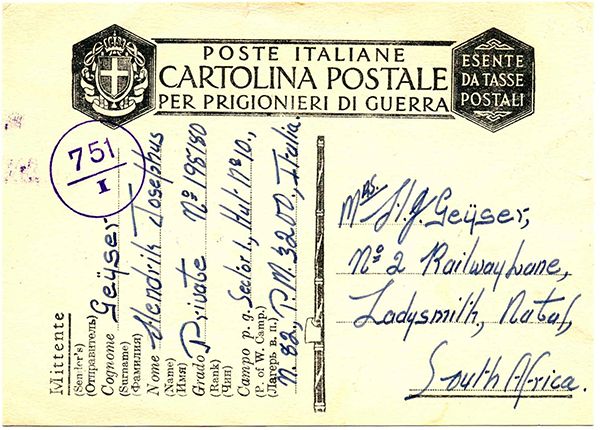 POSTE ITALIANE
CARTOLINA POSTALE
PER PRIGIONIERI DI GUERRA
ESENTE
DA TASSE
POSTALI
751
I
Mittente
(Sender's)
(Отправитель)
Cognome Geÿser
(Surname)
(Фамилия)
Nome Hendrik Josephus
(Name)
(Имя)
Grado Private Nº 198580
(Rank)
(Чин)
Campo p. g. Sector 1, Hut Nº 10.,
(P. of W. Camp.)
(Лагерь в. п.)
N. 82, P.M. 3200, Italia.
Mrs. H. J. Geÿser,
Nº 2 Railway Lane,
Ladysmith, Natal,
South Africa.